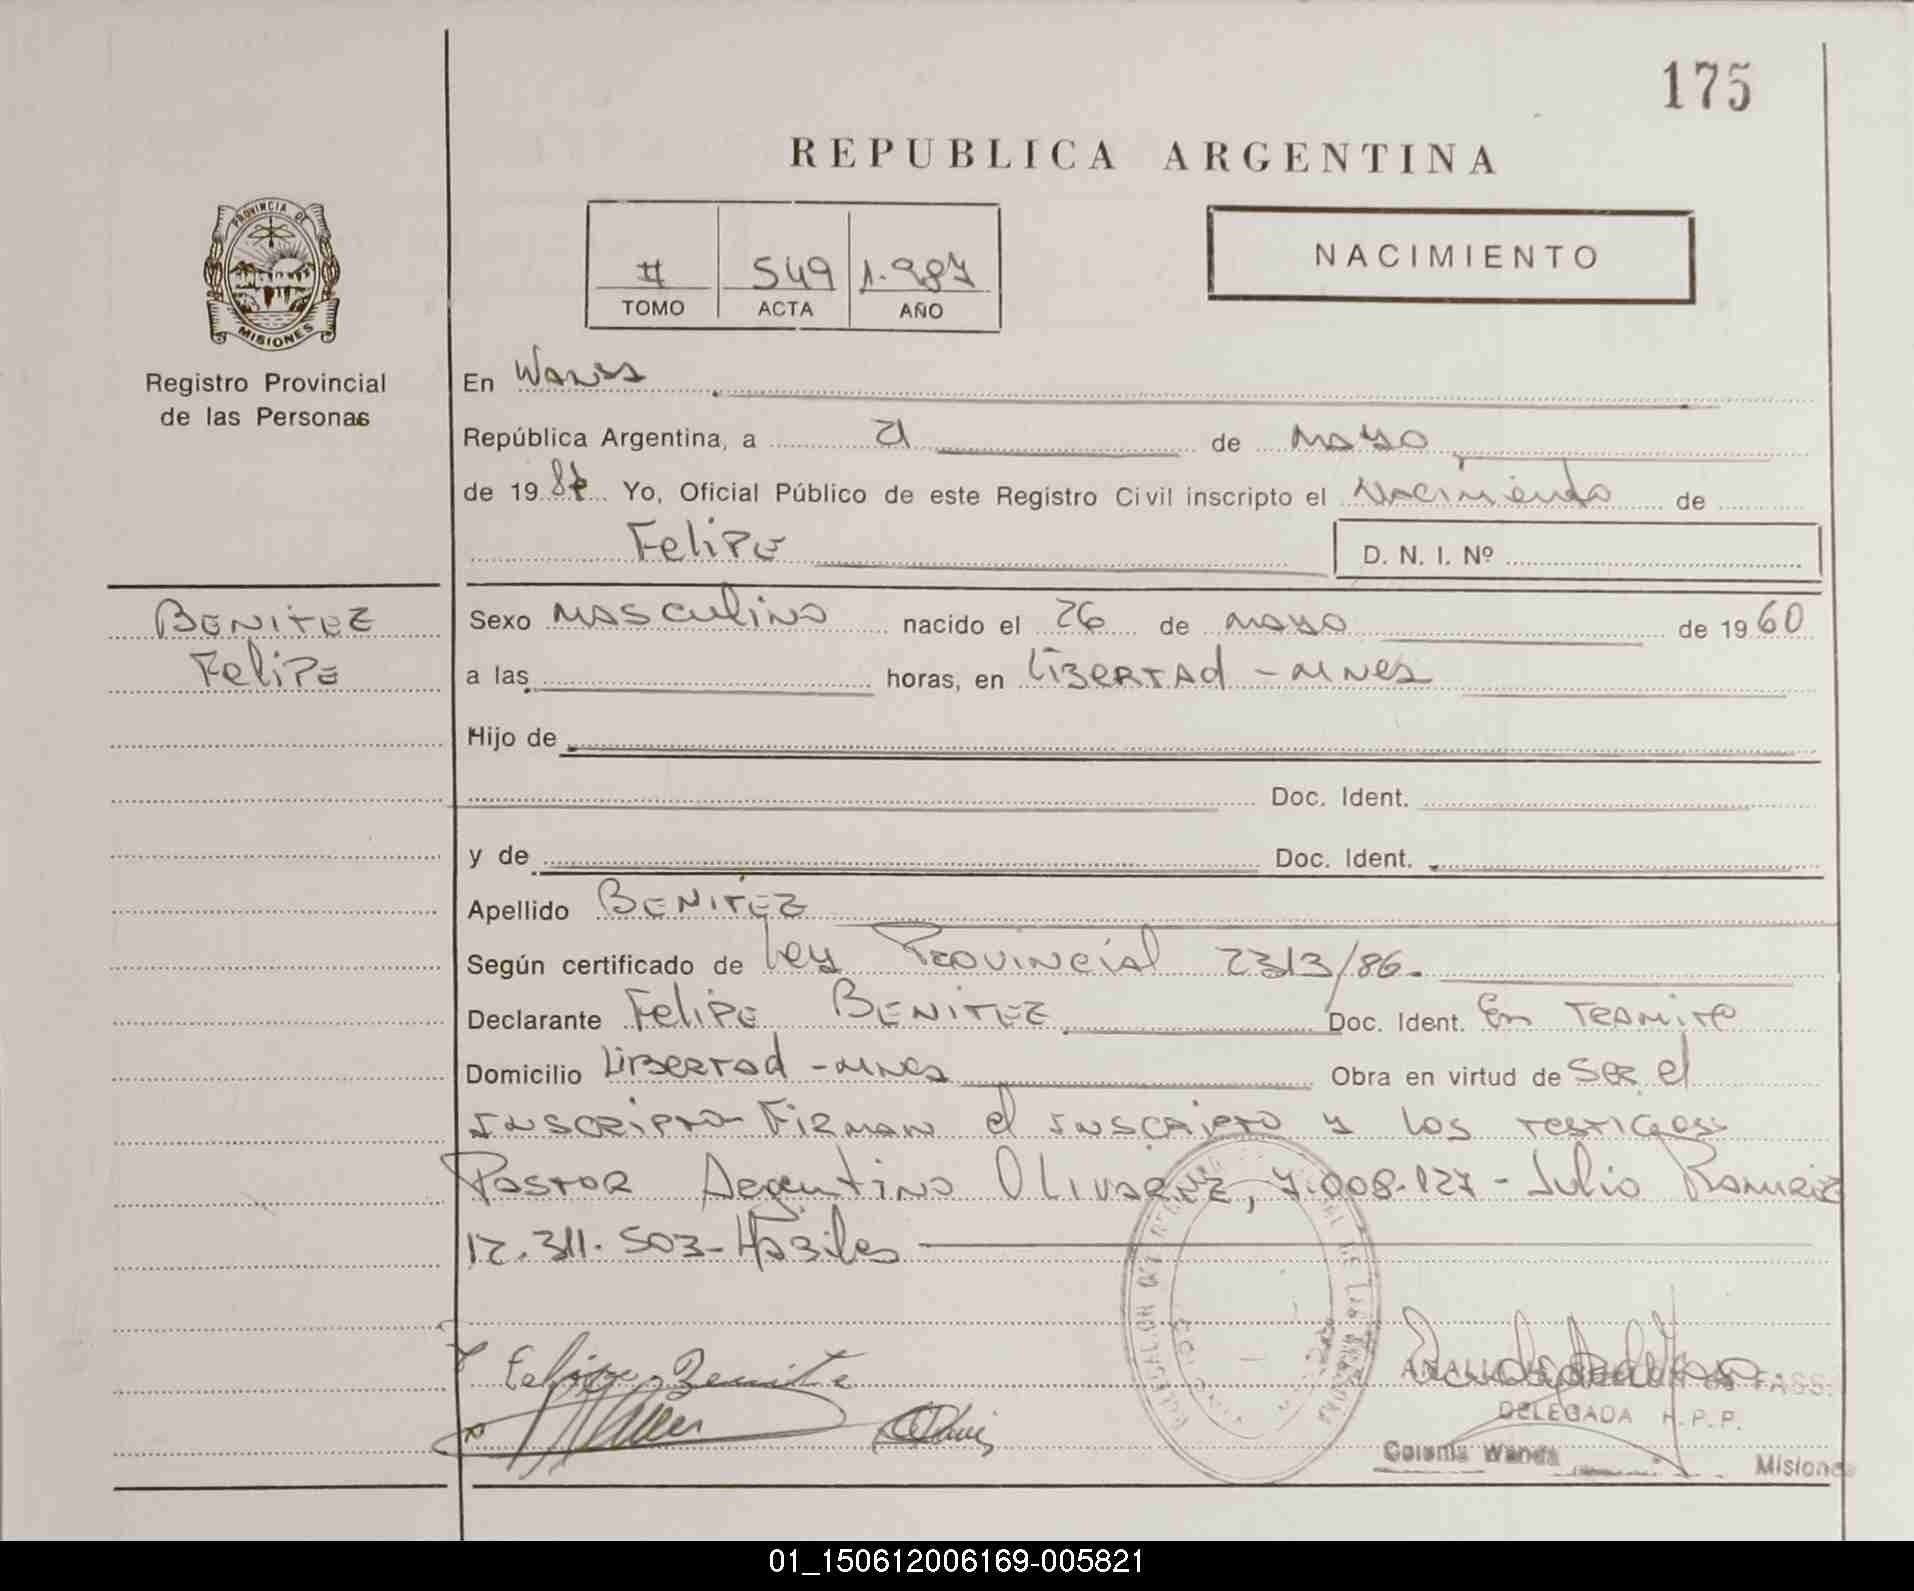 175
REPUBLICA ARGENTINA
PROVINCIA DE
MISIONES
Registro Provincial
de las Personas
II 549 1.987
TOMO ACTA AÑO
NACIMIENTO
En Wanda
República Argentina, a 21 de mayo
de 1987 Yo, Oficial Público de este Registro Civil inscripto el Nacimiento de
Felipe
D. N. I. Nº
BENITEZ
Felipe
Sexo masculino nacido el 26 de mayo de 1960
a las horas, en Libertad - Mnes
Hijo de
Doc. Ident.
y de Doc. Ident.
Apellido BENITEZ
Según certificado de Ley Provincial 2313/86.
Declarante Felipe BENITEZ Doc. Ident. En Tramite
Domicilio Libertad - Mnes Obra en virtud de ser el
inscripto - Firman el inscripto y los testigos
Pastor Argentino Olivarez, 7.008.127 - Julio Ramirez
12.311.503 - Habiles
Felipe Benite
DELEGADA R.P.P.
Colonia Wanda Misiones
01_150612006169-005821